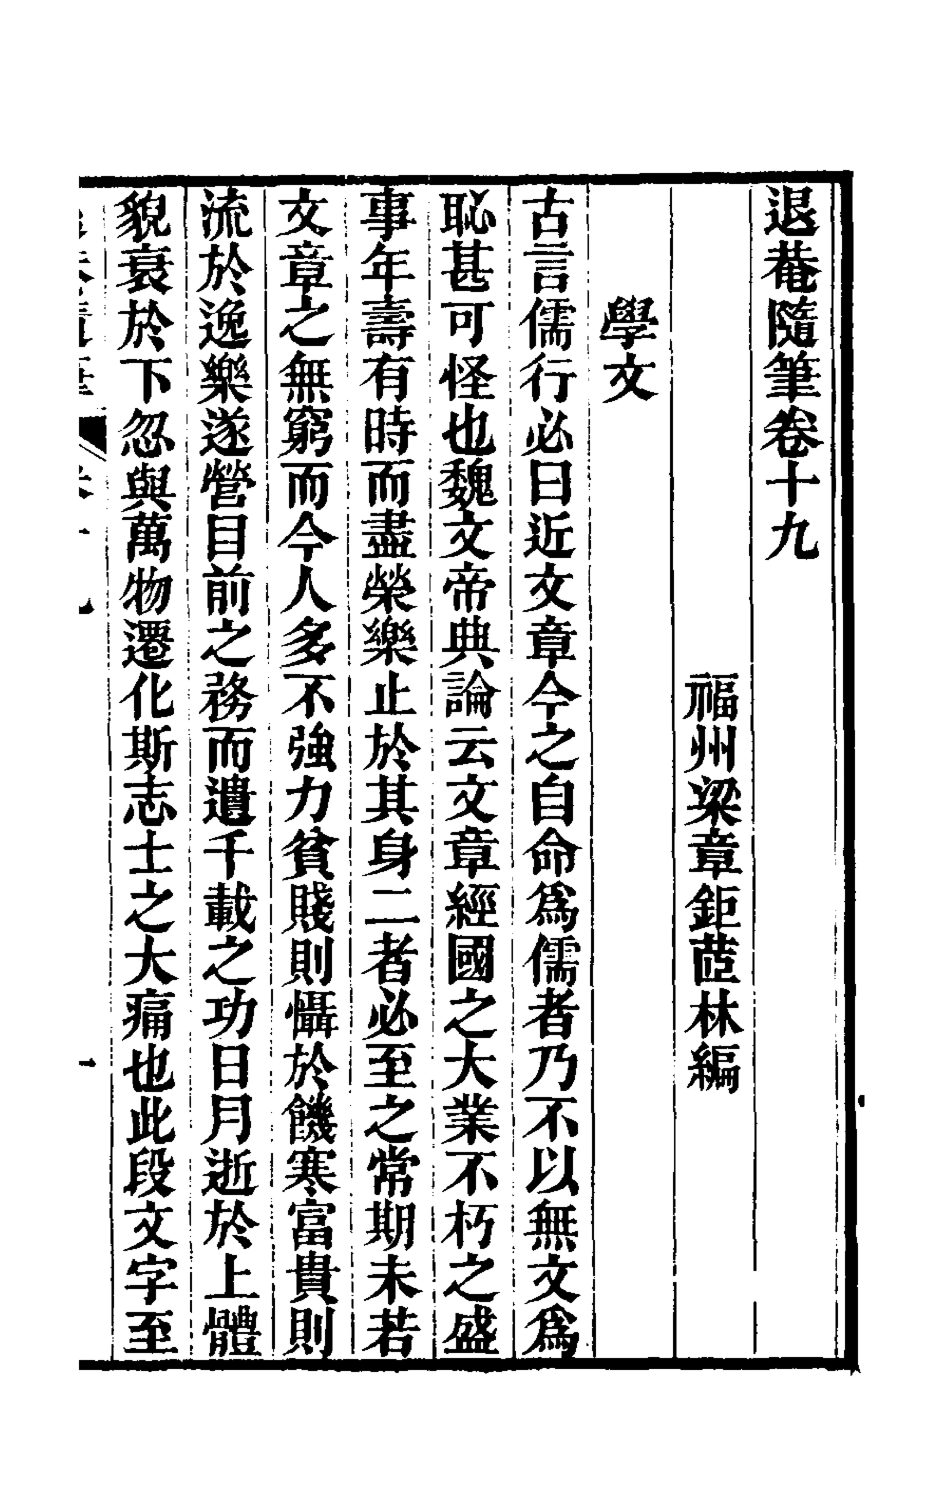 退菴隨筆卷十九
福州梁章鉅茝林編
學文
古言儒行必曰近文章今之自命爲儒者乃不以無文爲
恥甚可怪也魏文帝典論云文章經國之大業不朽之盛
事年壽有時而盡榮樂止於其身二者必至之常期未若
文章之無窮而今人多不強力貧賤則懾於饑寒富貴則
流於逸樂遂營目前之務而遺千載之功日月逝於上體
貌衰於下忽與萬物遷化斯志士之大痛也此段文字至